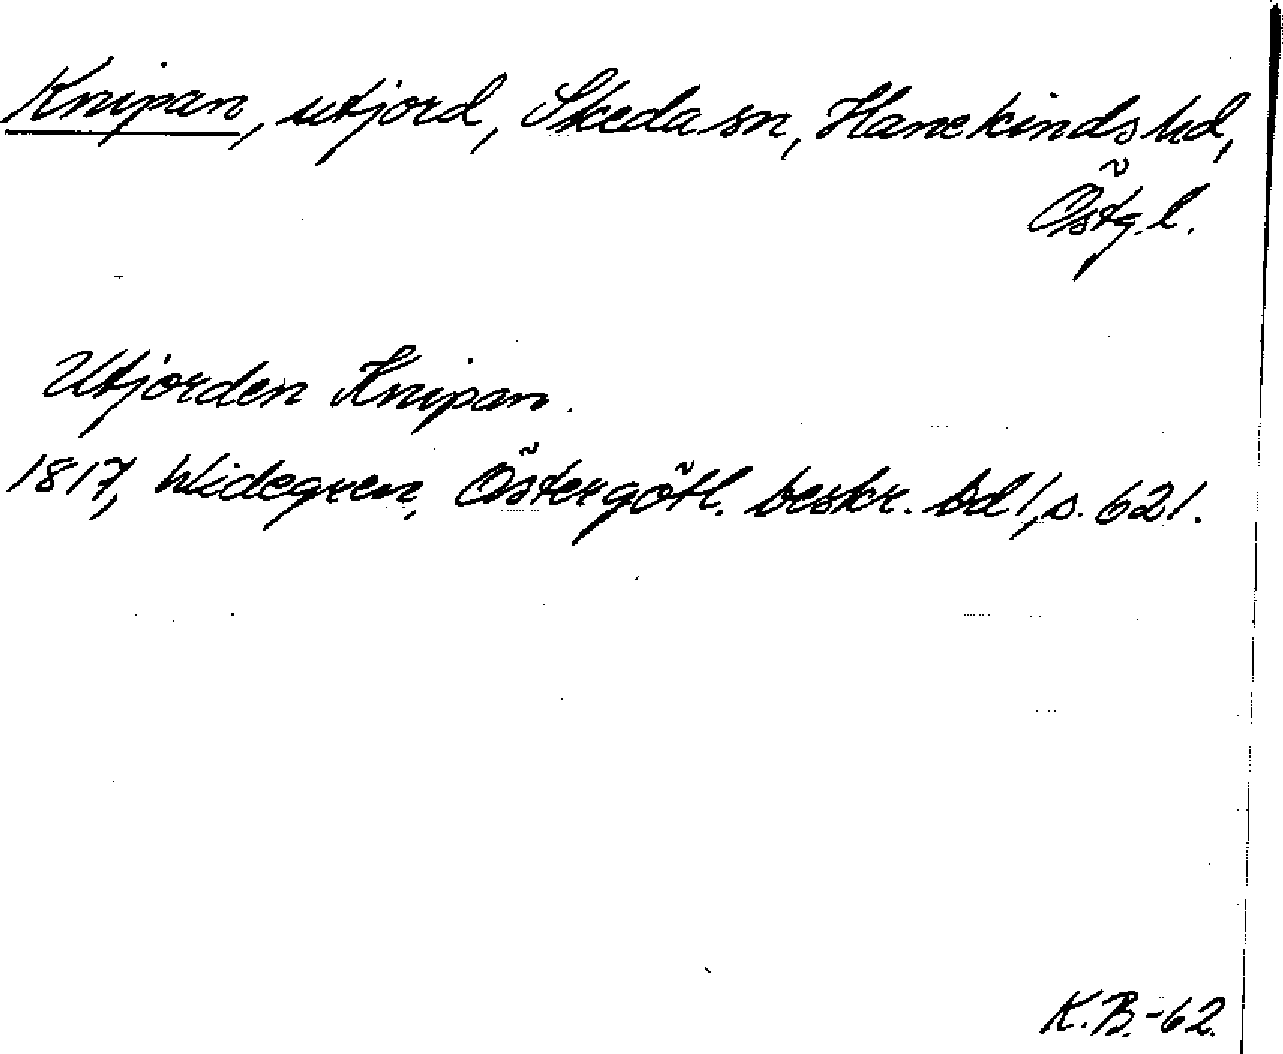 Knipan, utjord, Skeda sn, Hanekinds hd,
Östg.l.
Utjorden Knipan.
1817, Widegren, Östergötl. beskr. bd 1, s. 621.
K.B.-62.